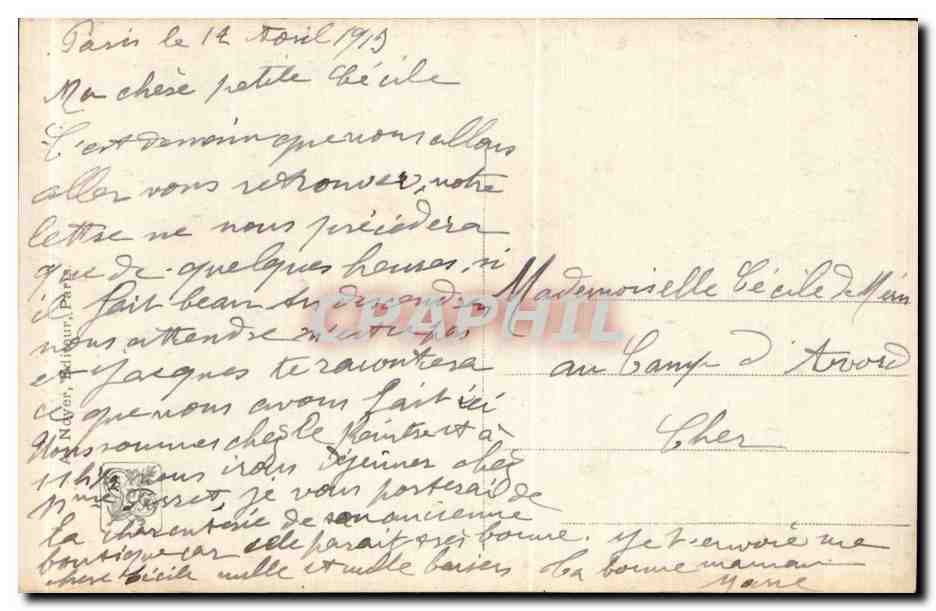 Paris le 12 Avril 1913
Ma chère petite Cécile
C'est demain que nous allons
aller vous retrouver, notre
lettre ne nous précèdera
que de quelques heures, si
il fait beau tu descendras
nous attendre
et Jacques te racontera
ce que nous avons fait ici
Nous sommes chez le Peintre et à
11h 1/2 nous irons déjeuner chez
Mme je vous porterai de
la charcuterie de son ancienne
boutique car elle parait très bonne. Je t'envoie ma
chère Cécile mille et mille baisers Ta bonne maman
Marie
Mademoiselle Cécile de
au Camp d'Avord
Cher
A. Noyer, Editeur, Paris
CPAPHIL